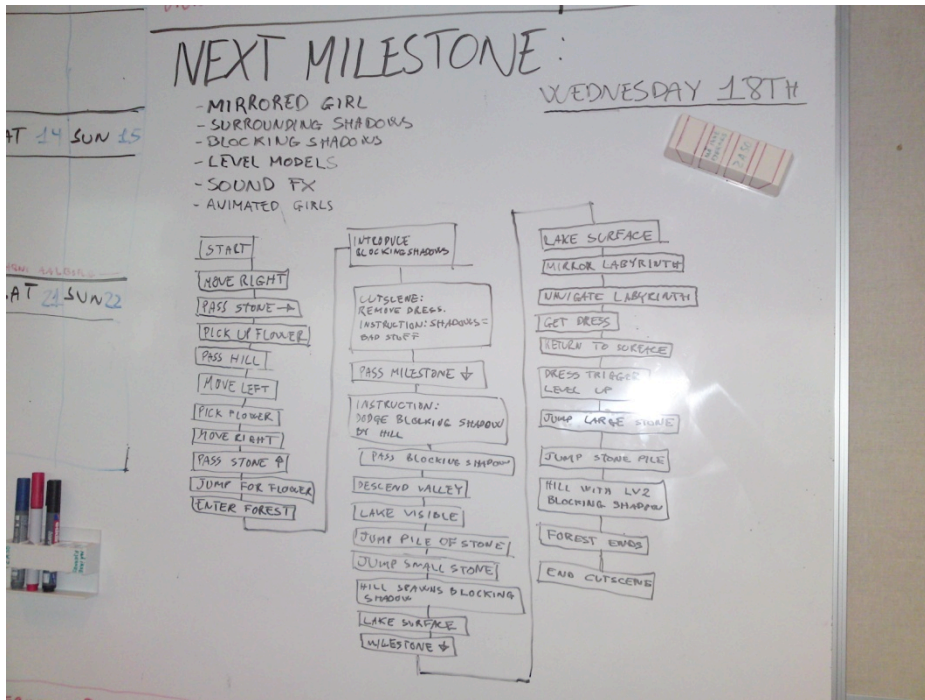 NEXT MILESTONE:
WEDNESDAY 18TH
- MIRRORED GIRL
- SURROUNDING SHADOWS
- BLOCKING SHADOWS
- LEVEL MODELS
- SOUND FX
- ANIMATED GIRLS
AT 14 SUN 15
AT 21 SUN 22
START
MOVE RIGHT
PASS STONE →
PICK UP FLOWER
PASS HILL
MOVE LEFT
PICK FLOWER
MOVE RIGHT
PASS STONE ↑
JUMP FOR FLOWER
ENTER FOREST
INTRODUCE
BLOCKING SHADOWS
CUTSCENE:
REMOVE DRESS.
INSTRUCTION: SHADOWS =
BAD STUFF
PASS MILESTONE ↓
INSTRUCTION:
DODGE BLOCKING SHADOW
BY HILL
PASS BLOCKING SHADOW
DESCEND VALLEY
LAKE VISIBLE
JUMP PILE OF STONE
JUMP SMALL STONE
HILL SPAWNS BLOCKING
SHADOW
LAKE SURFACE
MILESTONE ↓
LAKE SURFACE
MIRROR LABYRINTH
NAVIGATE LABYRINTH
GET DRESS
RETURN TO SURFACE
DRESS TRIGGER
LEVEL UP
JUMP LARGE STONE
JUMP STONE PILE
HILL WITH LV2
BLOCKING SHADOW
FOREST ENDS
END CUTSCENE